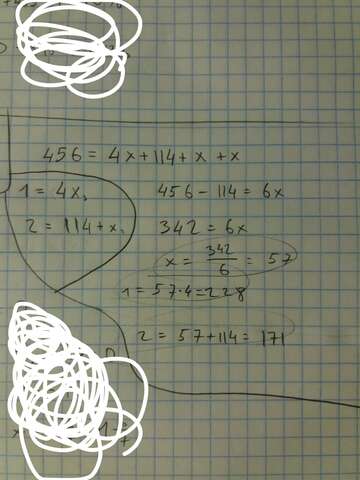 456 = 4x+114+x+x
1 = 4x,
456-114 = 6x
2 = 114+x,
342 = 6x
x = 342/6 = 57
1 = 57·4=228
2 = 57+114= 171